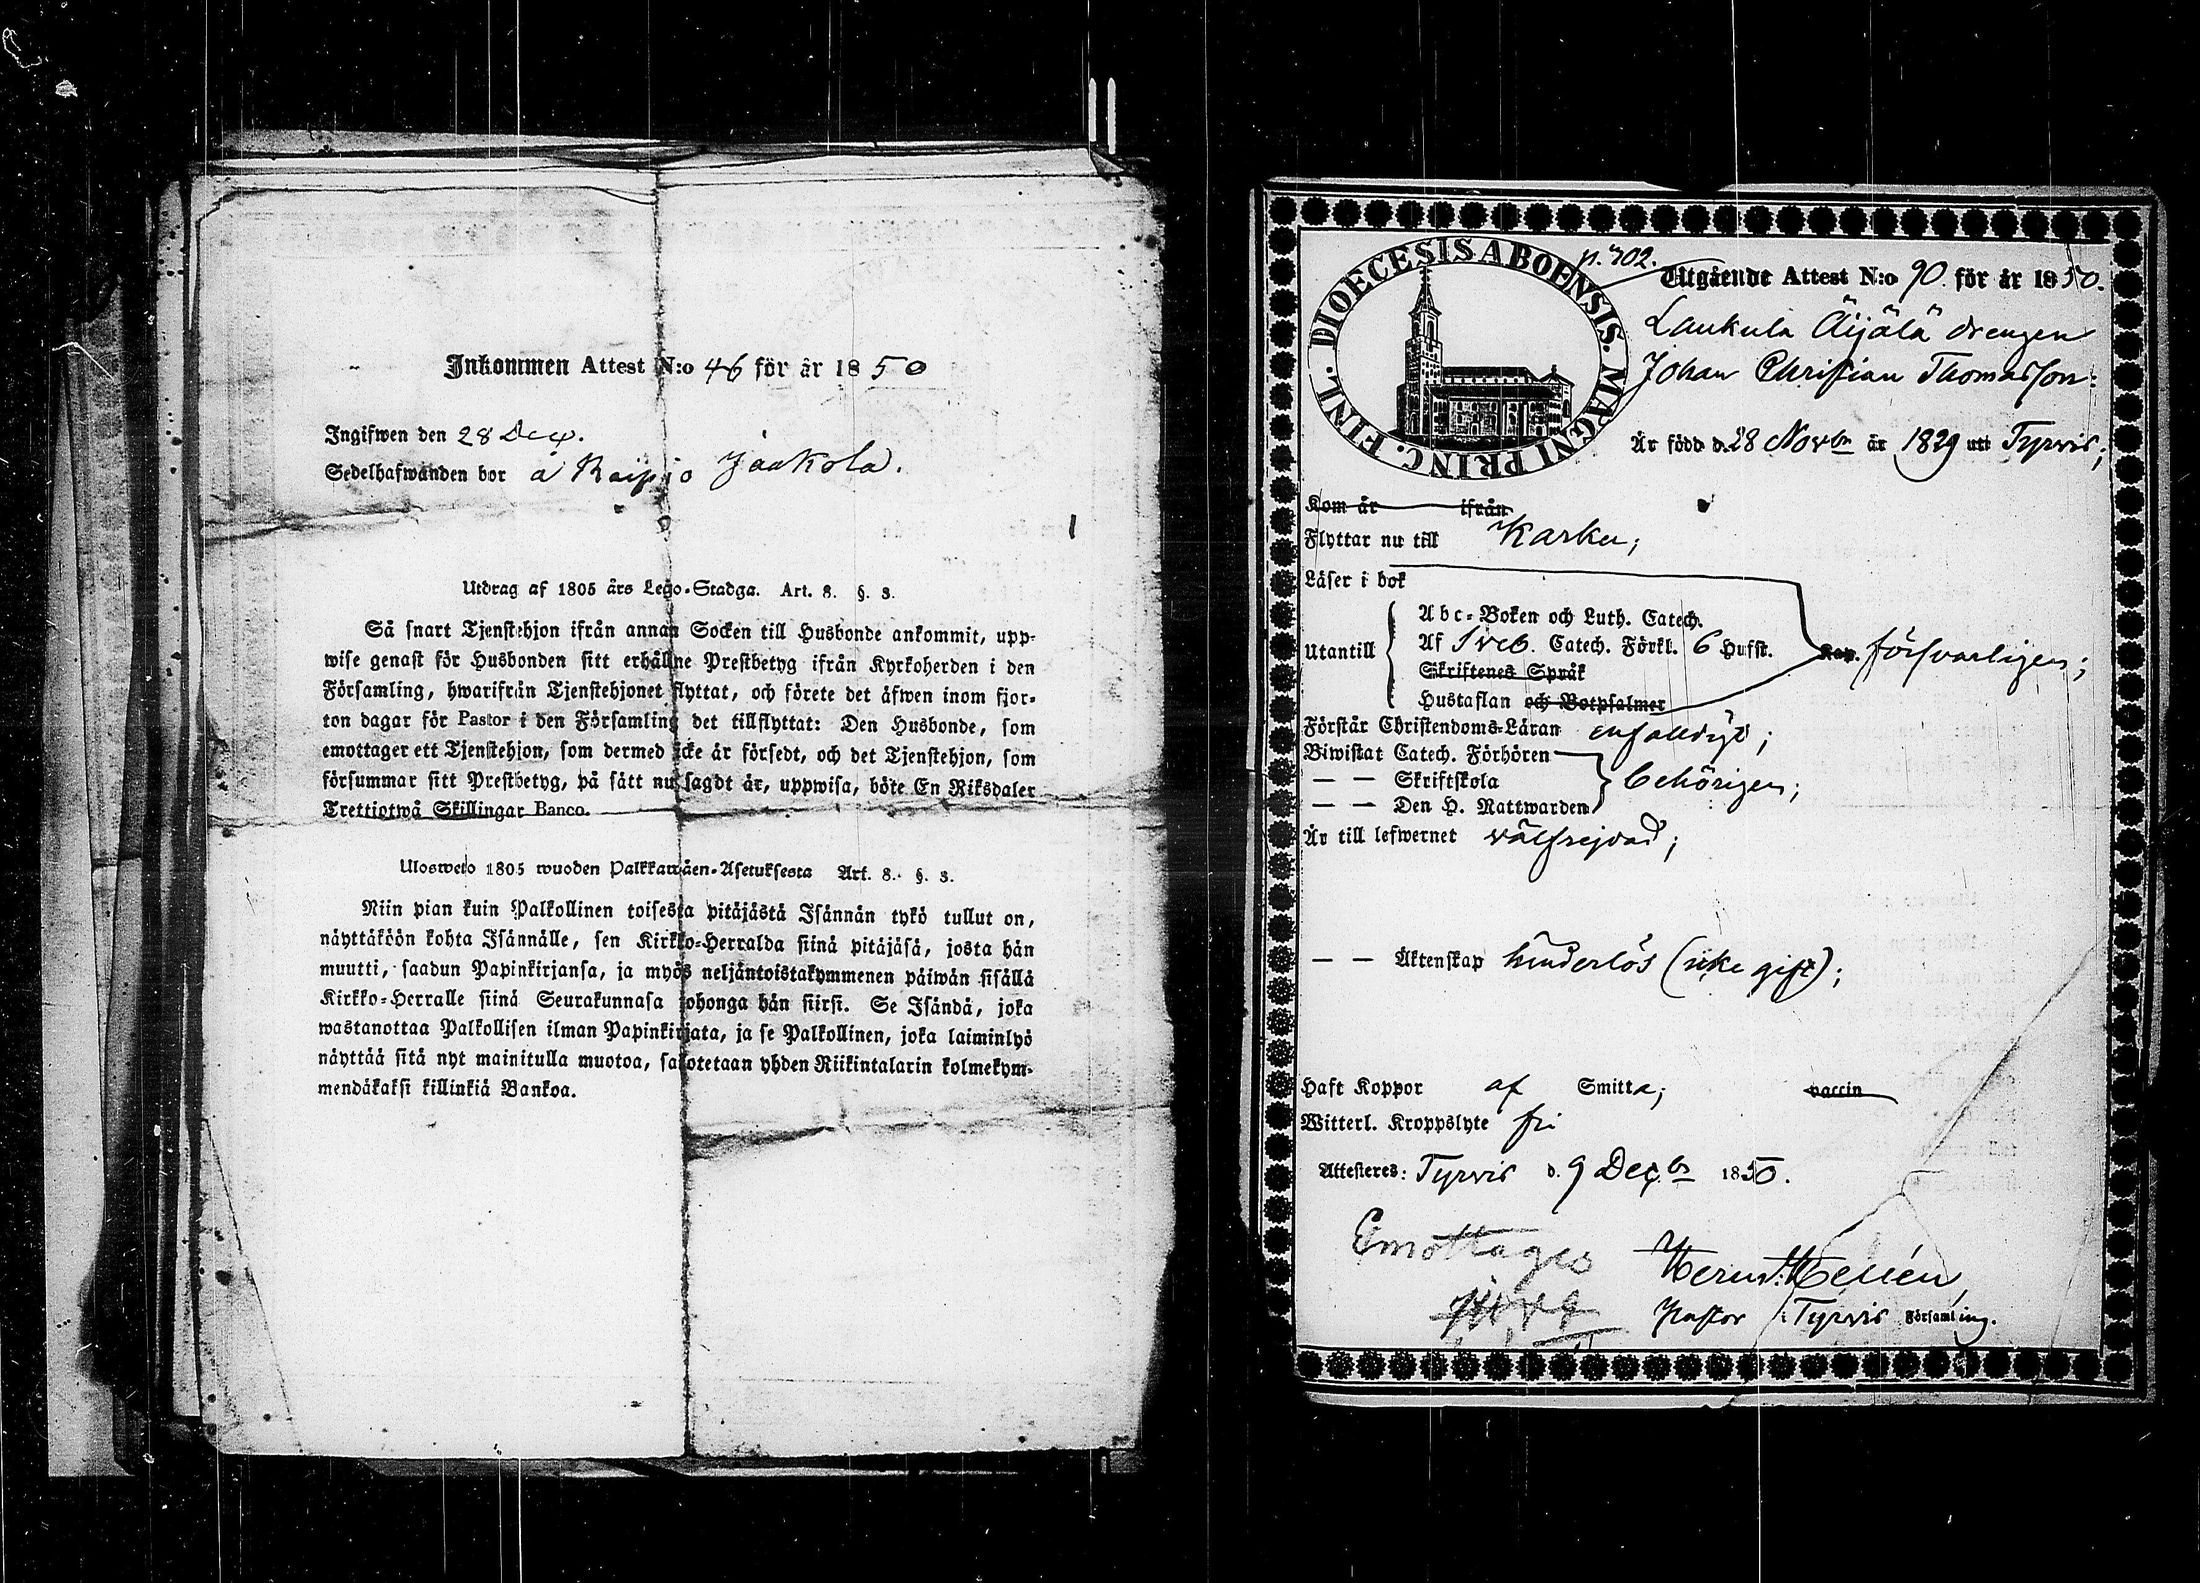 Inkommen Attest N:o 46 för år 1850
Ingifwen den 28 Dec.
Sedelhafwanden bor å Raipio Jaakola.
Utdrag af 1805 års Lego-Stadga. Art. 8. §. 3.
Så snart Tjenstehjon ifrån annan Socken till Husbonde ankommit, upp-
wise genast för Husbonden sitt erhållne Prestbetyg ifrån Kyrkoherden i den
Församling, hwarifrån Tjenstehjonet flyttat, och förete det äfwen inom fjor-
ton dagar för Pastor i den Församling det tillflyttat: Den Husbonde, som
emottager ett Tjenstehjon, som dermed icke är försedt, och det Tjenstehjon, som
försummar sitt Prestbetyg, på sätt nu sagdt är, uppwisa, böte En Riksdaler
Trettiotwå Skillingar Banco.
Ulosweto 1805 wuoden Palkkawäen-Asetuksesta Art. 8. §. 3.
Niin pian kuin Palkollinen toisesta pitäjästä Isännän tykö tullut on,
näyttäköön kohta Isännälle, sen Kirkko-Herralda siinä pitäjäsä, josta hän
muutti, saadun Papinkirjansa, ja myös neljäntoistakymmenen päiwän sisällä
Kirkko-Herralle siinä Seurakunnasa johonga hän siirsi. Se Isändä, joka
wastanottaa Palkollisen ilman Papinkirjata, ja se Palkollinen, joka laiminlyö
näyttää sitä nyt mainitulla muotoa, sakotetaan yhden Riikintalarin kolmekym-
mendäkaksi killinkiä Bankoa.
DIOECESIS ABOENSIS. MAGNI PRINC. FINL.
p. 702.
Utgående Attest N:o 90. för år 1850.
Laukula Äijälä drengen
Johan Christian Thomasson:
Är född d. 28 Novbr år 1829 uti Tyrvis;
Kom år ifrån
Flyttar nu till Karku;
Läser i bok
Abc-Boken och Luth. Catech.
Utantill Af Sveb. Catech. Förkl. 6 Hufst. Kap. försvarligen;
Skriftenes Språk
Hustaflan och Botpsalmer
Förstår Christendoms-Läran enfaldigt;
Biwistat Catech. Förhören
— — Skriftskola behörigen;
— — Den H. Nattwarden
Är till lefwernet välfrejdad;
— — Äktenskap hinderlös (icke gift);
Haft Koppor af Smitta; vaccin
Witterl. Kroppslyte fri
Attesteres: Tyrvis d. 9 Decbr 1850.
Emottages
Pastor i Tyrvis Församling.